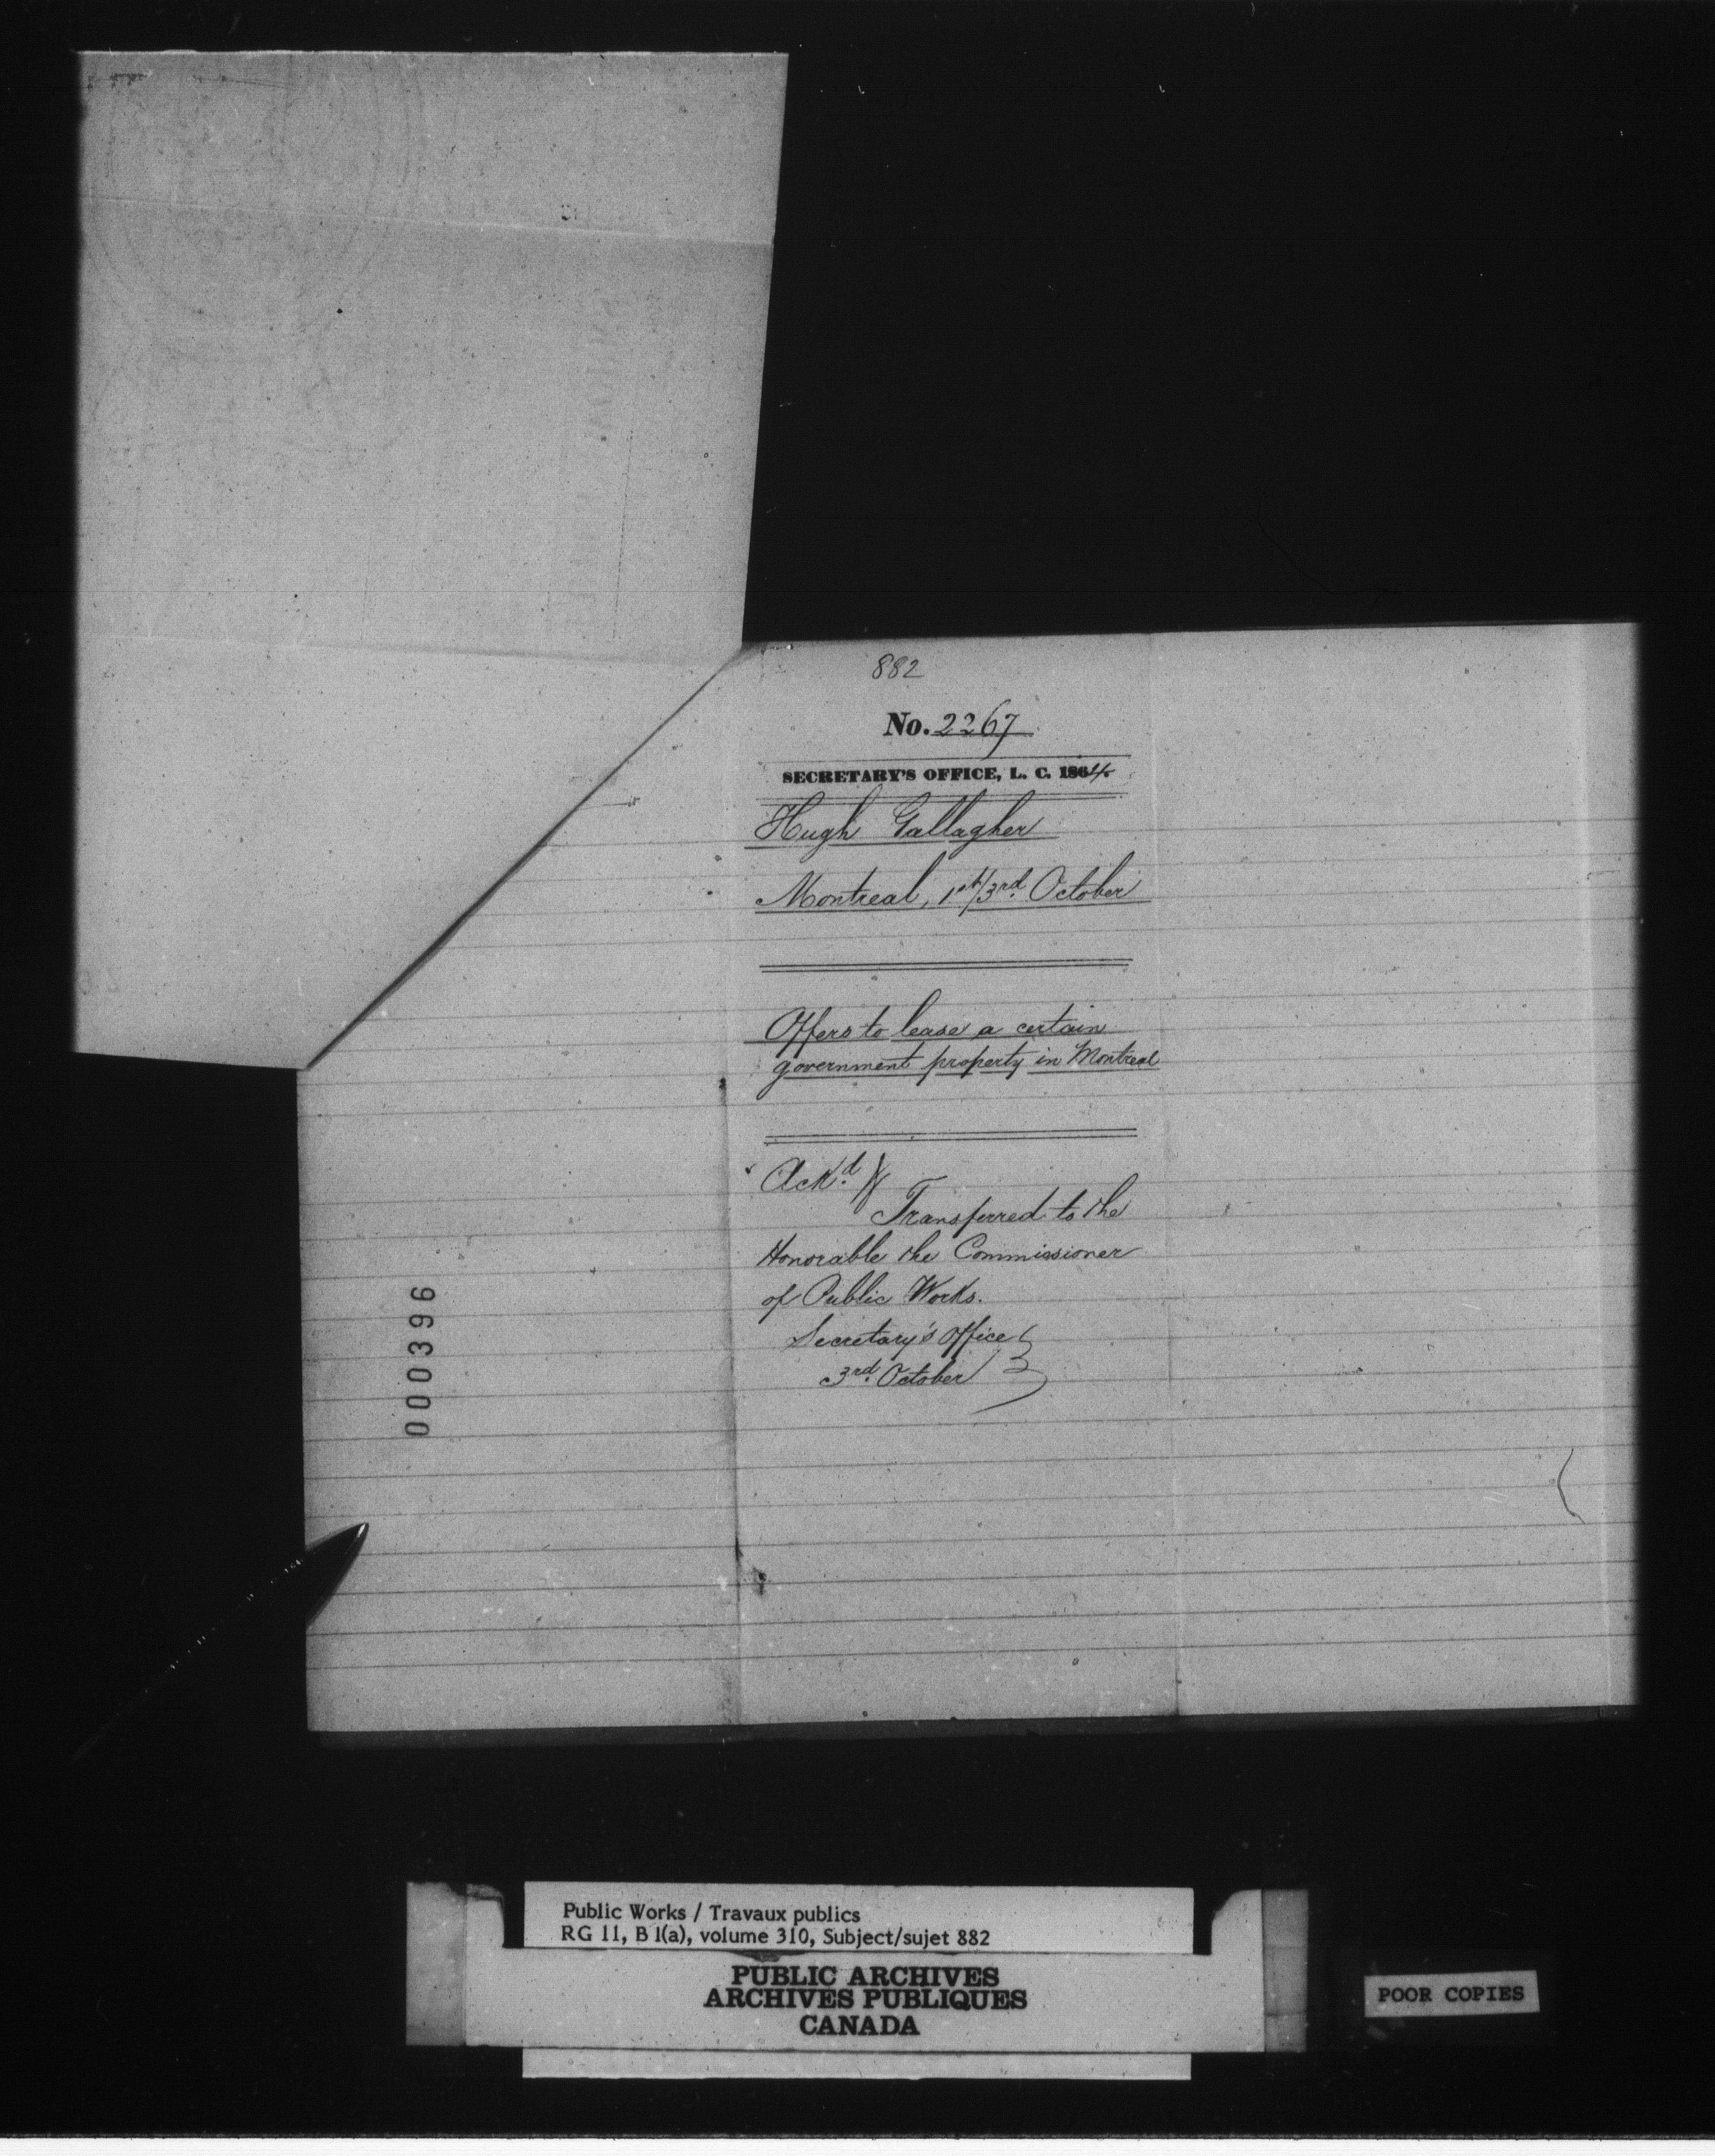 882
No. 2267
SECRETARY'S OFFICE, L. C. 1864
Hugh Gallagher
Montreal, 1st/3rd October
Offers to lease a certain
government property in Montreal
Ackd.
Transferred to the
Honorable the Commissioner
of Public Works.
Secretary's Office
3rd October
000396
Public Works / Travaux publics
RG 11, B 1(a), volume 310, Subject/sujet 882
PUBLIC ARCHIVES
ARCHIVES PUBLIQUES
CANADA
POOR COPIES